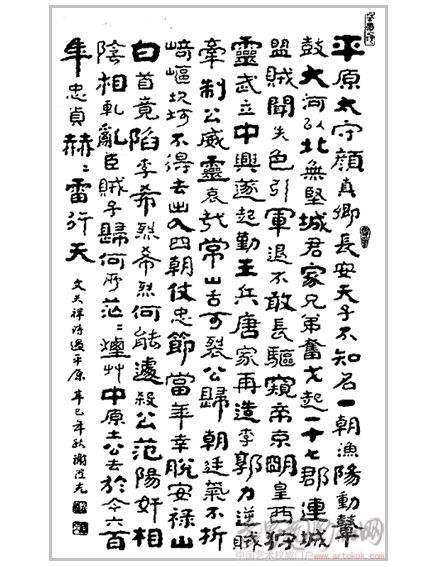 平原太守顏真卿長安天子不知名一朝漁陽動鼙
鼓大河以北無堅城君家兄弟奮戈起一十七郡連城
盟賊聞失色引軍退不敢長驅窺帝京明皇西狩
靈武立中興遂起勤王兵唐家再造李郭力逆賊
牽制公威靈哀哉常山舌可裂公歸朝廷氣不折
崎嶇坎坷不得去出入四朝仗忠節當年幸脫安祿山
白首竟陷李希烈希烈何能遽殺公范陽奸相
陰相軋亂臣賊子歸何所茫〻煙艸中原土公去於今六百
年忠貞赫〻雷行天
文天祥詩過平原 辛巳年秋 謝澄光